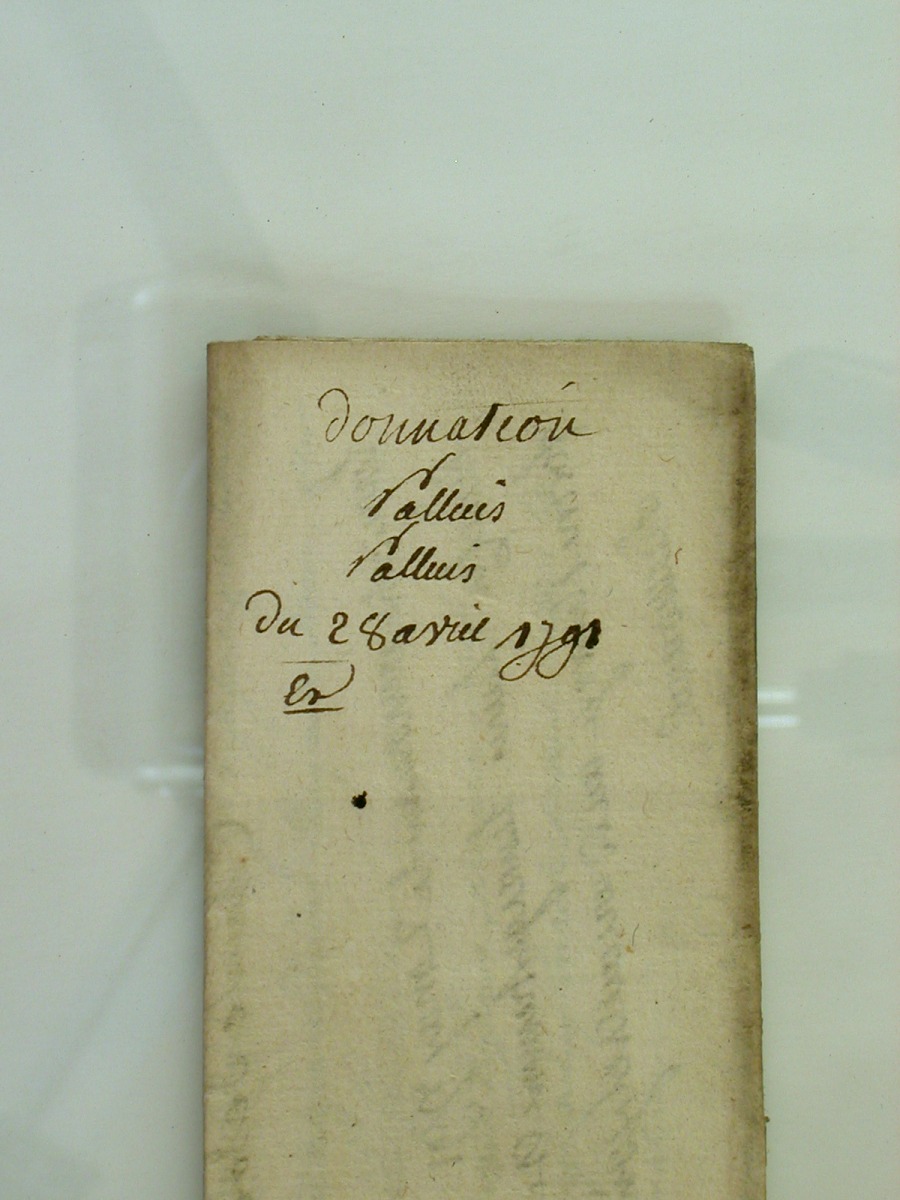 donnation
Palluis
Palluis
Du 28 avril 1791